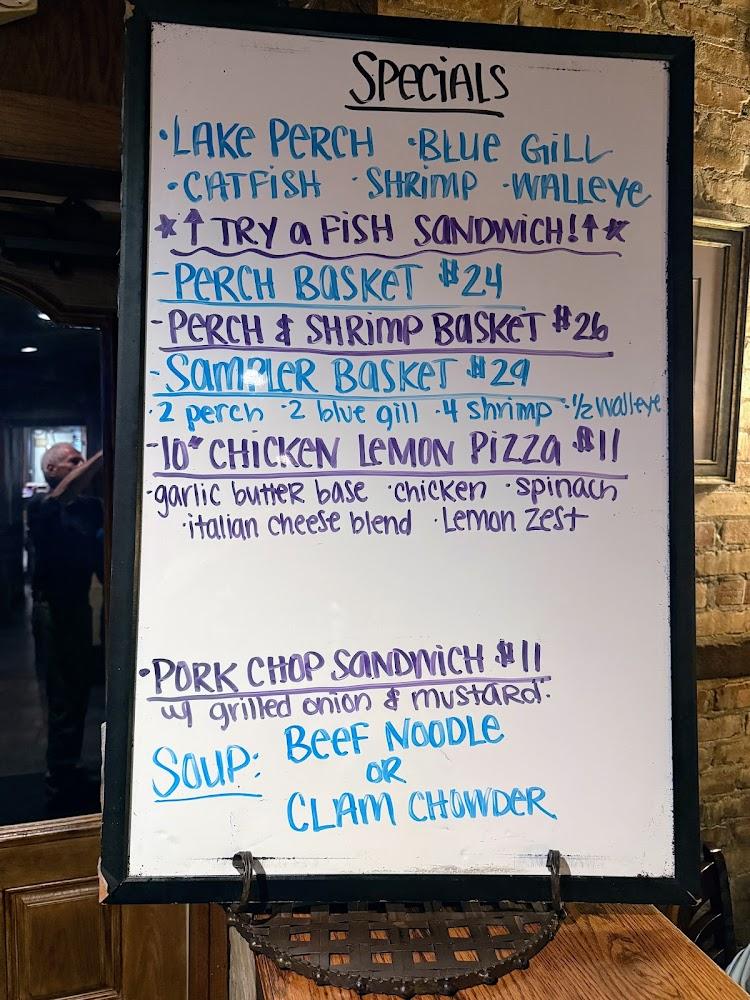 SPECIALS
·LAKE PERCH ·BLUE GILL
·CATFISH ·SHRIMP ·WALLEYE
*↑TRY a FISH SANDWICH!↑*
-PERCH BASKET $24
-PERCH & SHRIMP BASKET $26
-SAMPLER BASKET $29
·2 perch ·2 blue gill ·4 shrimp ·1/2 walleye
-10" CHICKEN LEMON PIZZA $11
·garlic butter base ·chicken ·spinach
·italian cheese blend ·Lemon Zest
·PORK CHOP SANDWICH $11
w/ grilled onion & mustard·
SOUP: BEEF NOODLE
OR
CLAM CHOWDER